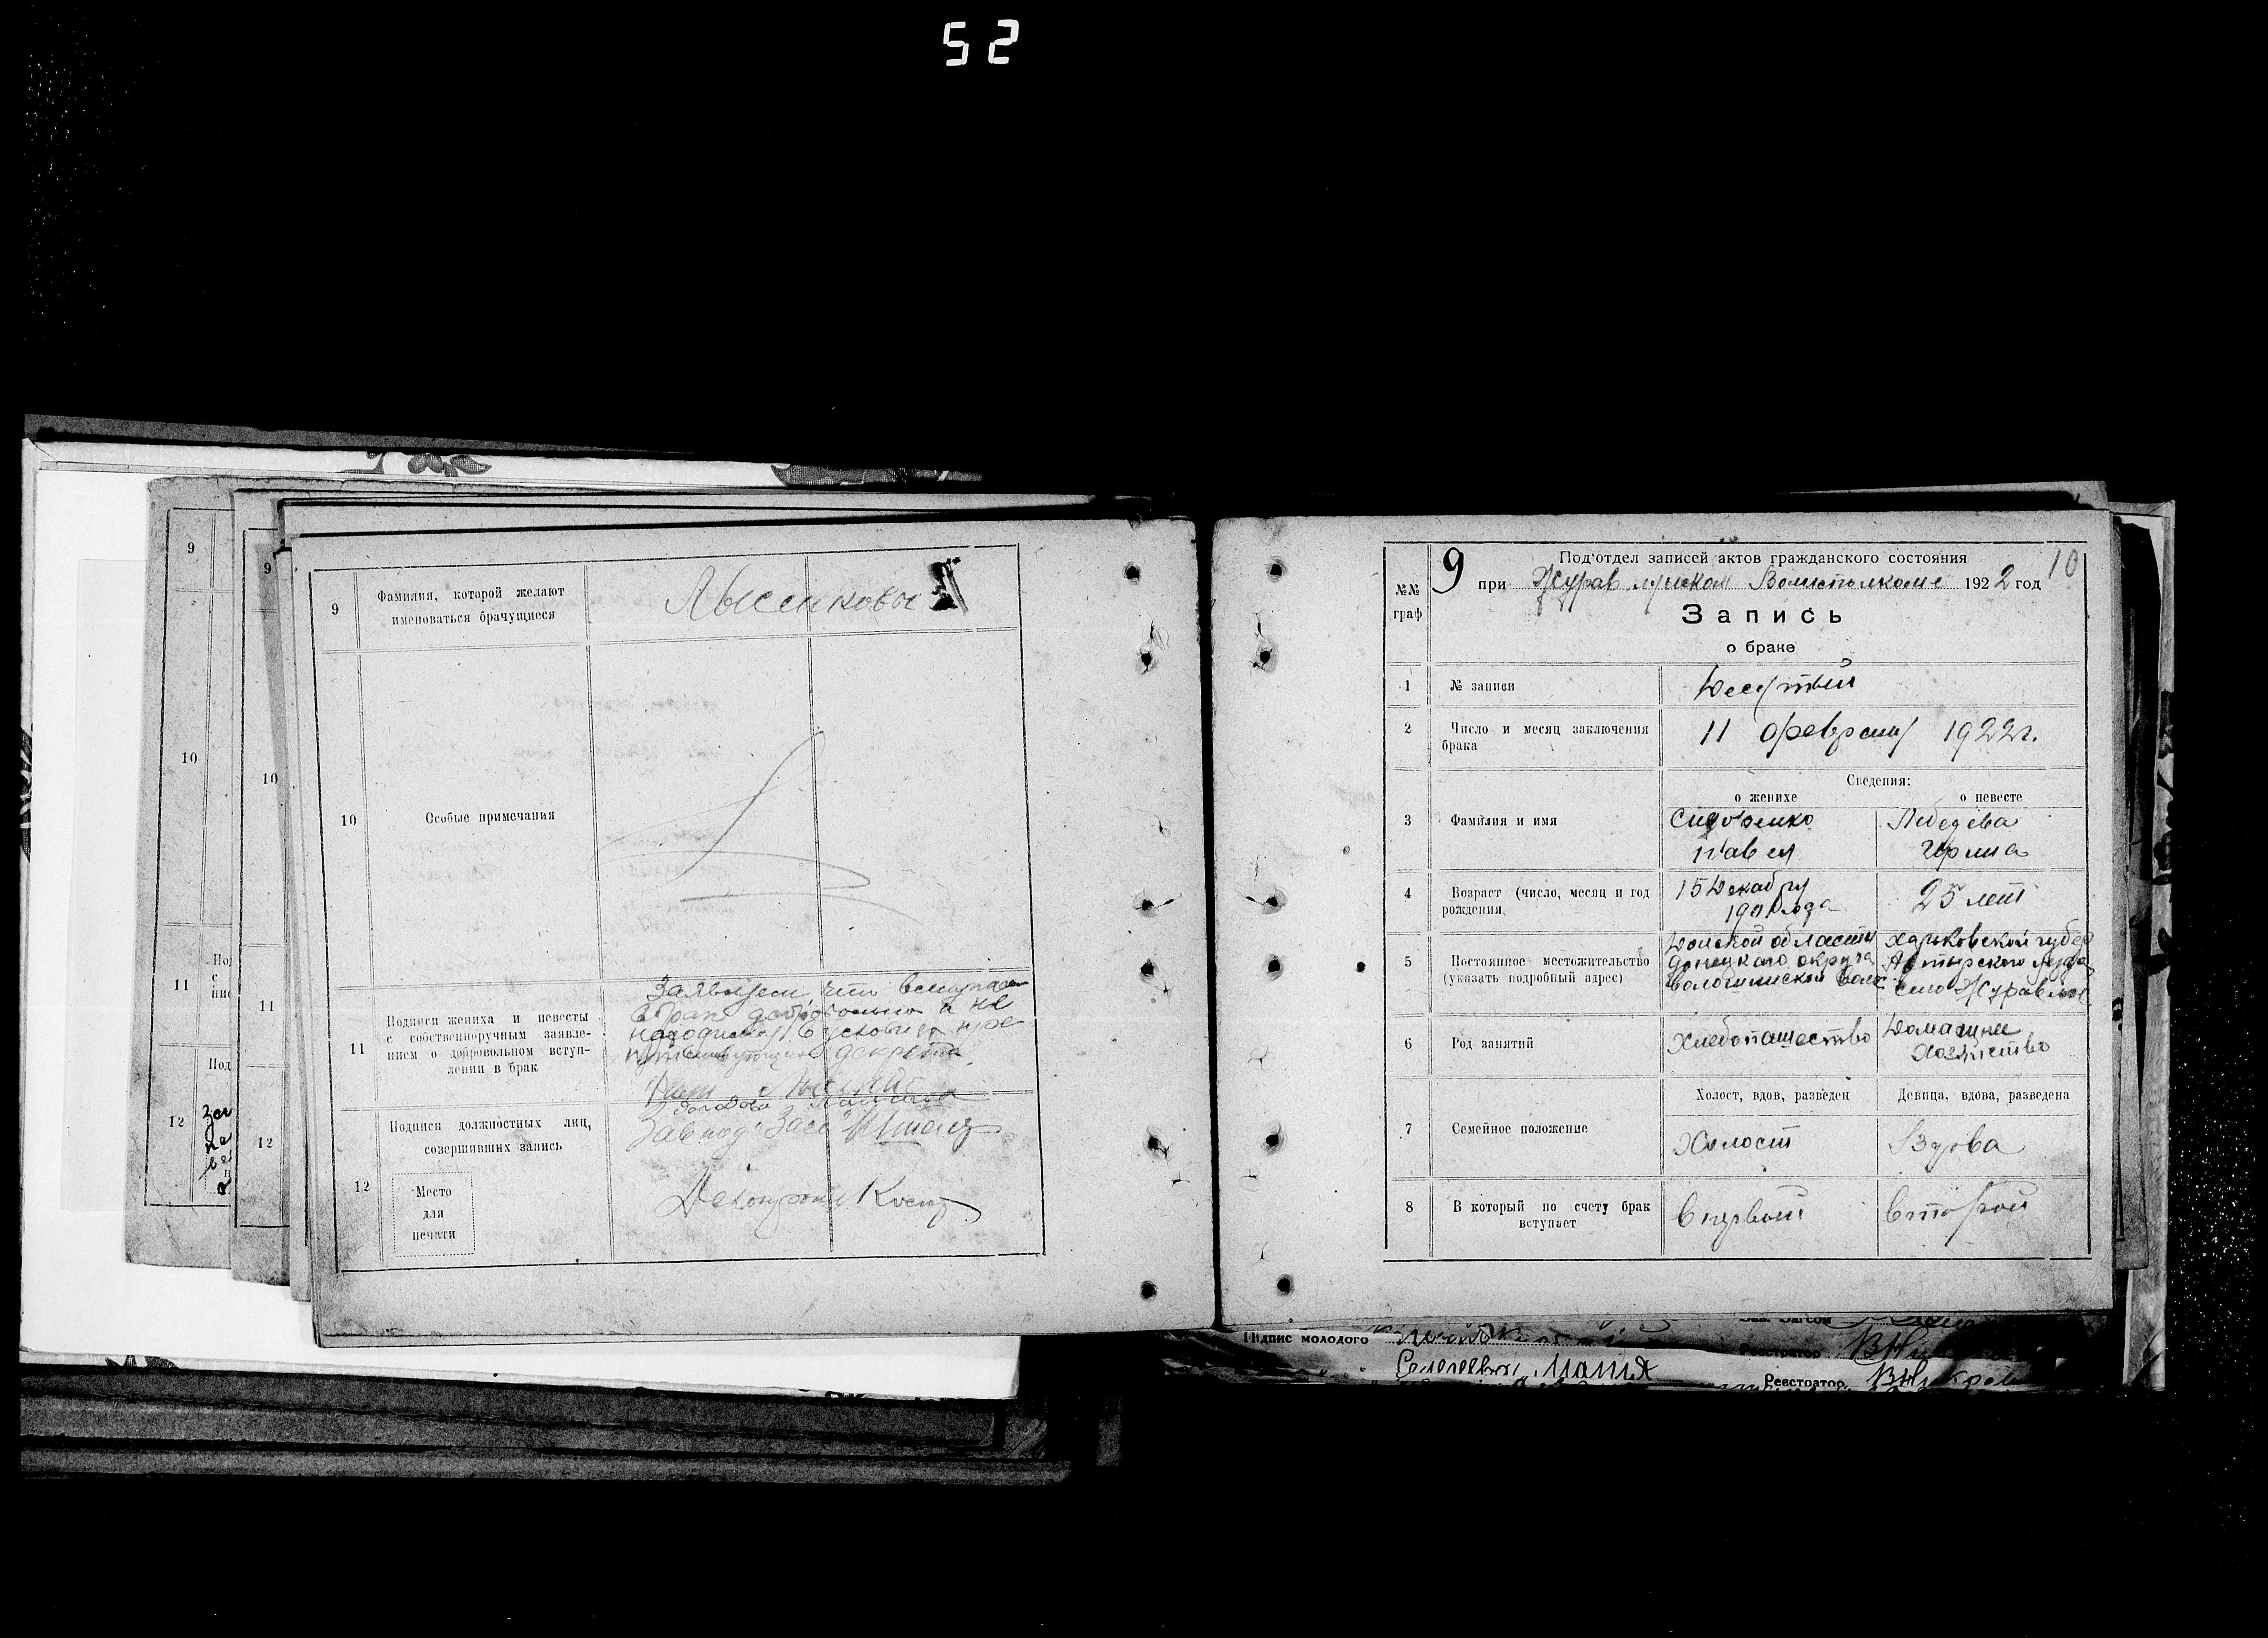 52
9
10
11
12
Под
9
10
11
12
9
Фамилия, которой желают
именоваться брачущиеся
Лысенковы
10
Особые примечания
11
Подписи жениха и невесты
с собственноручным заявле-
нием о добровольном вступ-
лении в брак
Заявляем, что вступаем
в брак добровольно и не
находимся в условиях пре-
декрета
12
Подписи должностных лиц,
совершивших запись
Место
для
печати
Завпод. Загс
Делопроизв.
№№
граф
9
Под'отдел записей актов гражданского состояния
10
при Журавлянском Волисполкоме 1922 год
Запись
о браке
1
№ записи
Десятый
2
Число и месяц заключения
брака
11 февраля 1922г.
Сведения:
о женихе
о невесте
3
Фамилия и имя
Сидоренко
Павел
Лебедева
Ирина
4
Возраст (число, месяц и год
рождения
15 Декабря
1901 года
25 лет
5
Постоянное местожительство
(указать подробный адрес)
Донской области
Донецкого округа
Волошинской волос
Харьковской губер
Ахтырского уезда
село Журавное
6
Род занятий
Хлебопашество
Домашнее
хозяйство
7
Семейное положение
Холост, вдов, разведен
Девица, вдова, разведена
Холост
Вдова
8
В который по счету брак
вступает
в первый
второй
Підпис молодого
Реєстратор
Реєстратор